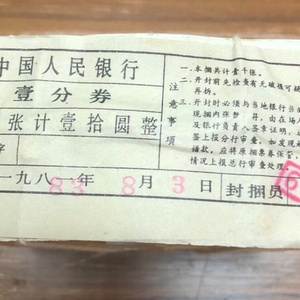 中国人民银行
壹分券
张计壹拾圆整
字
一九八 83 年 8 月 3 日 封捆员
注意事项
一．本捆共计壹千张。
二．开封前先检查有无破损可疑
再拆。
三．开封时必须与当地银行当
现捆内张 符，由在场人
及银行负责人签章证明，
签上报分行审查，如发现
错款，应将原捆票券张签
情况上报总行审查处理。